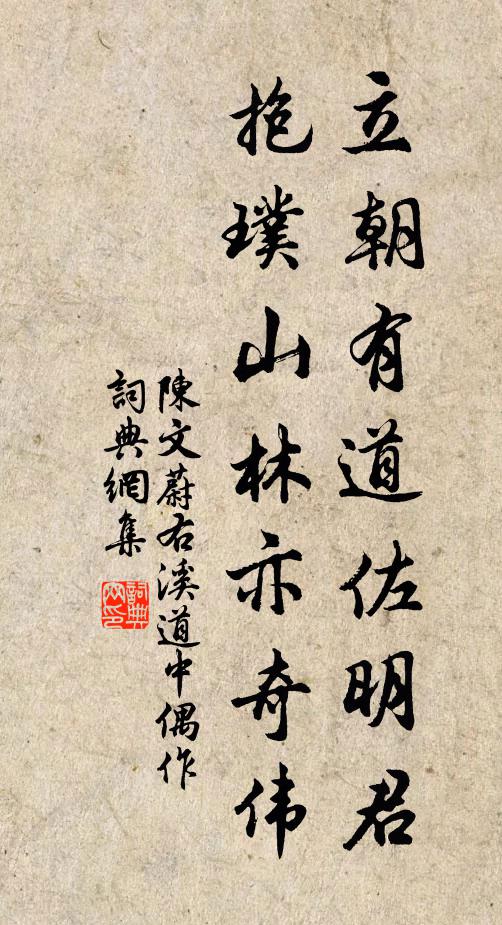 立朝有道佐明君
抱璞山林亦奇伟
陳文蔚右溪道中偶作
詞典網集
詞典網印